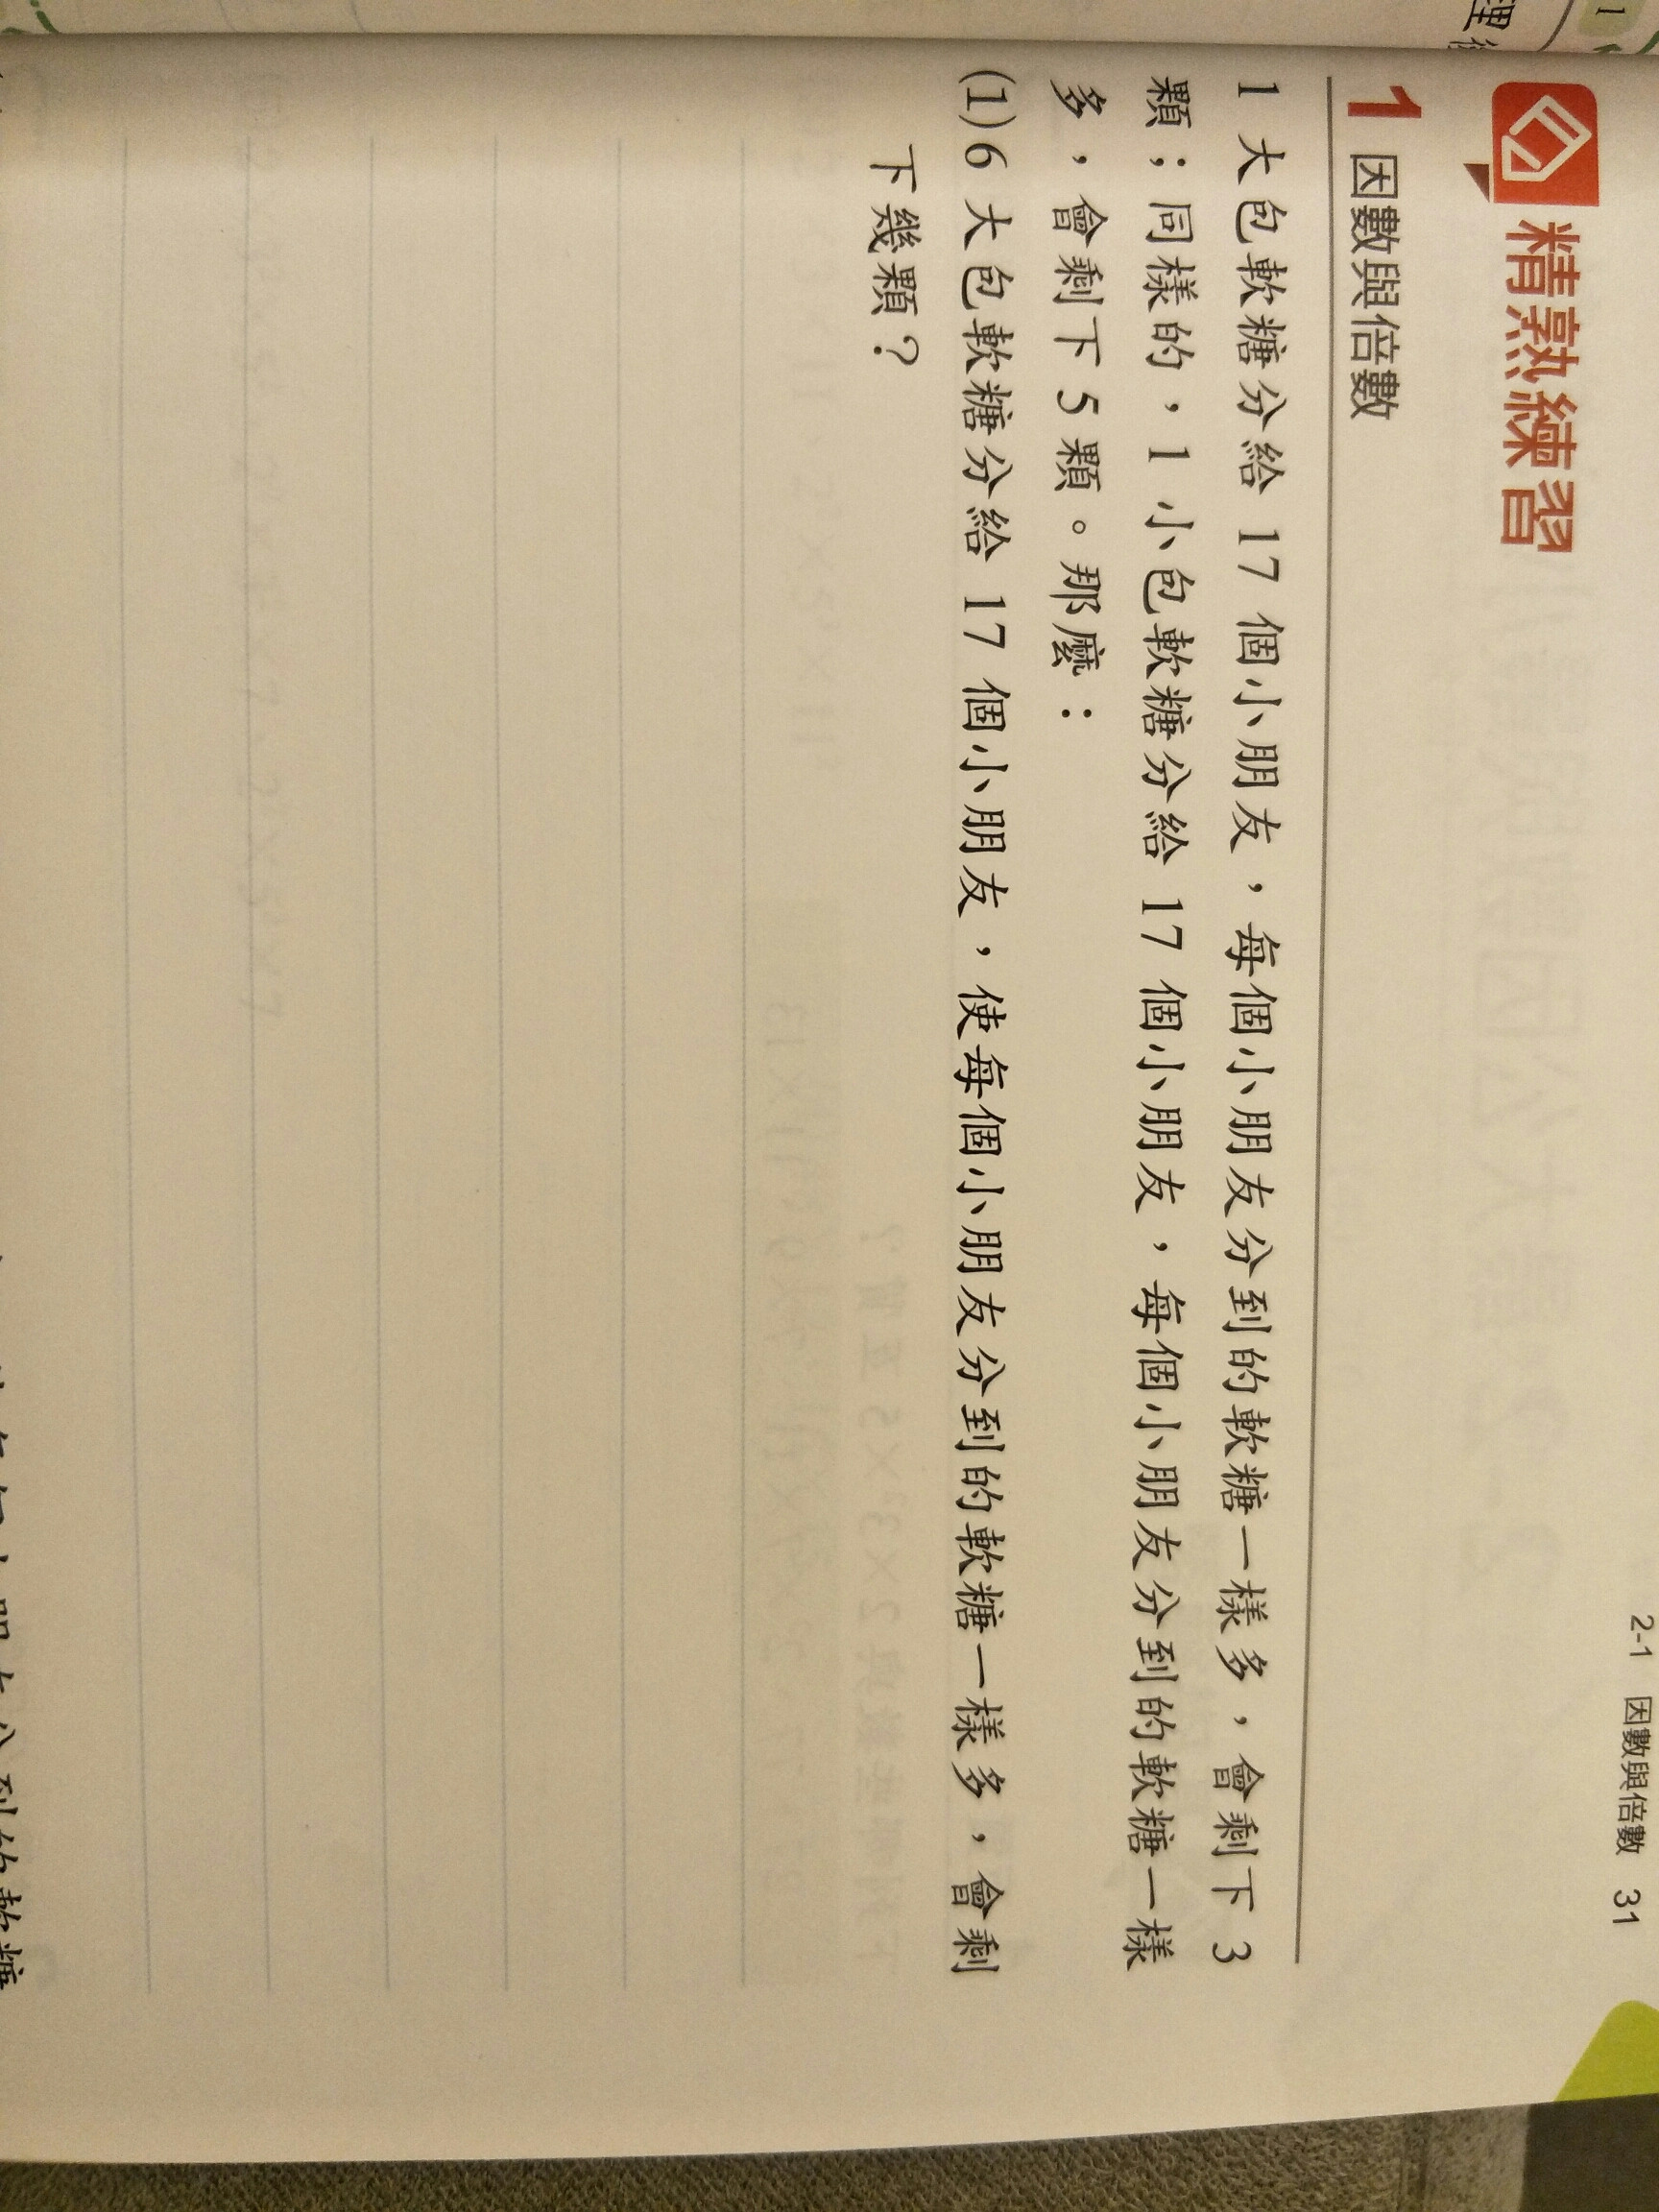 2-1 因數與倍數 31
精熟練習
1 因數與倍數
1 大包軟糖分給 17 個小朋友，每個小朋友分到的軟糖一樣多，會剩下 3
顆；同樣的，1 小包軟糖分給 17 個小朋友，每個小朋友分到的軟糖一樣
多，會剩下 5 顆。那麼：
(1)6 大包軟糖分給 17 個小朋友，使每個小朋友分到的軟糖一樣多，會剩
下幾顆？